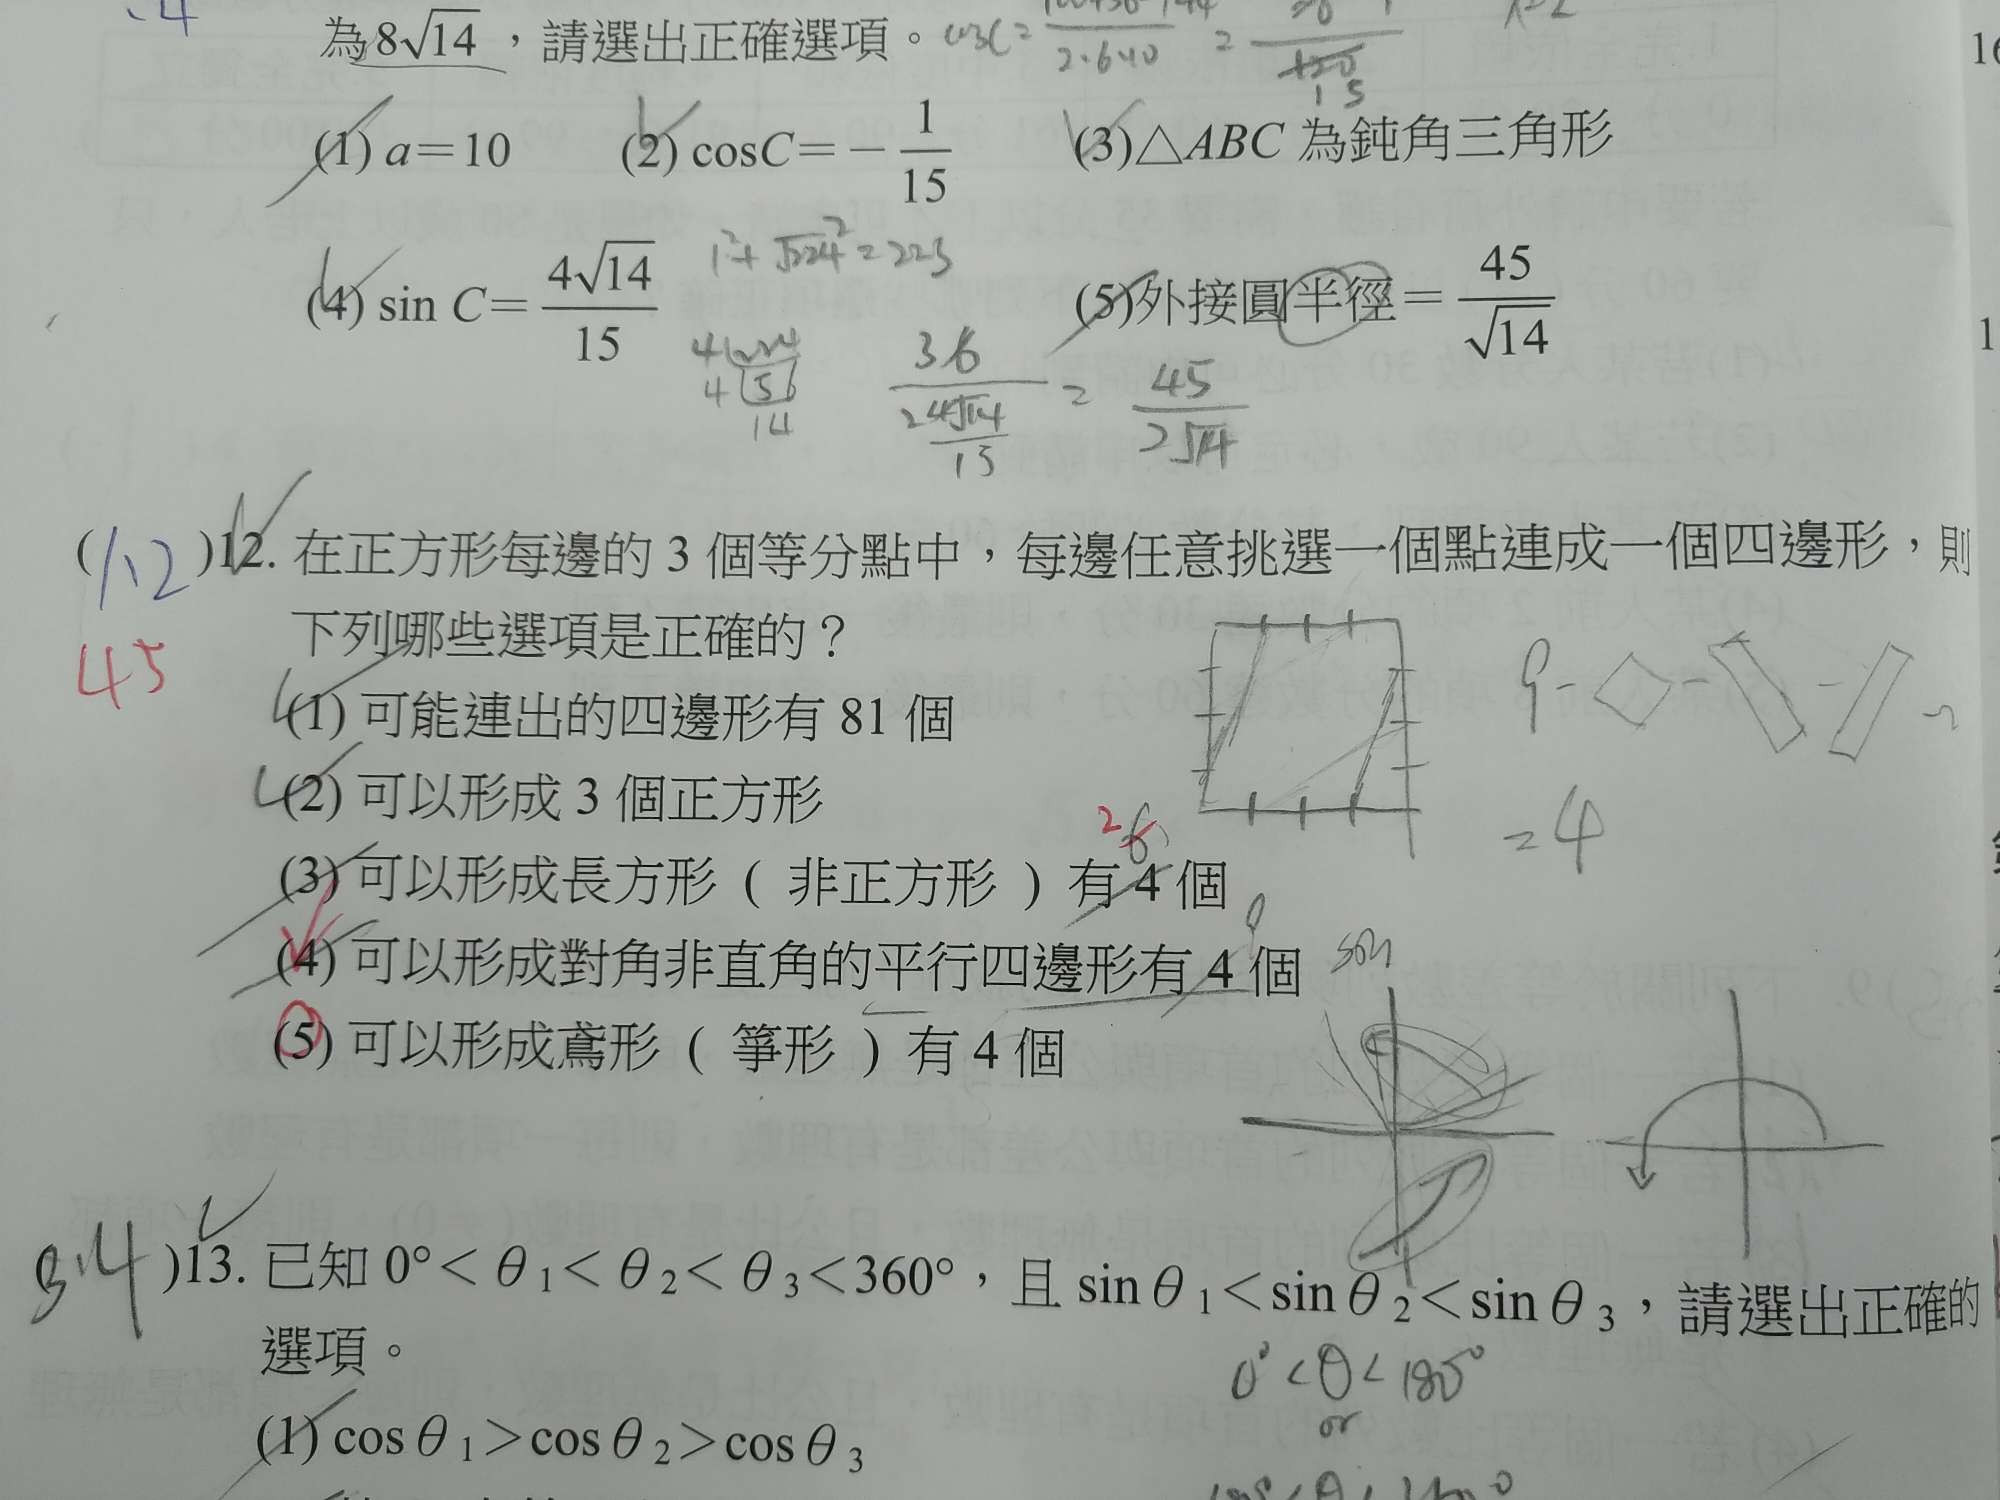 .4
為 8√14 ，請選出正確選項。 cosC =
2·6·10
=
15
16
(1) a＝10 (2) cosC＝－1/15 (3)△ABC 為鈍角三角形
1² + √224² = 225
(4) sin C＝4√14/15 (5)外接圓半徑＝45/√14
4 224
4 56
14
36
24√14
15
= 45/2√14
(1,2 )12. 在正方形每邊的 3 個等分點中，每邊任意挑選一個點連成一個四邊形，則
45
下列哪些選項是正確的？
(1) 可能連出的四邊形有 81 個
9 - - -
(2) 可以形成 3 個正方形
= 4
2 6
(3) 可以形成長方形 ( 非正方形 ) 有 4 個
(4) 可以形成對角非直角的平行四邊形有 4 個
(5) 可以形成鳶形 ( 箏形 ) 有 4 個
3.4 )13. 已知 0°< θ 1< θ 2< θ 3<360°，且 sin θ 1<sin θ 2<sin θ 3，請選出正確的
選項。
0° < θ < 180°
or
(1) cos θ 1>cos θ 2>cos θ 3